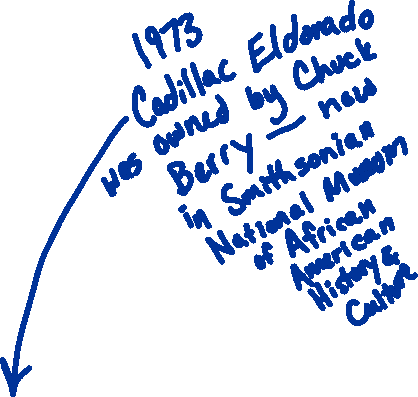 1973
Cadillac Eldorado
was owned by Chuck
Berry — now
in Smithsonian
National Museum
of African
American
History &
Culture